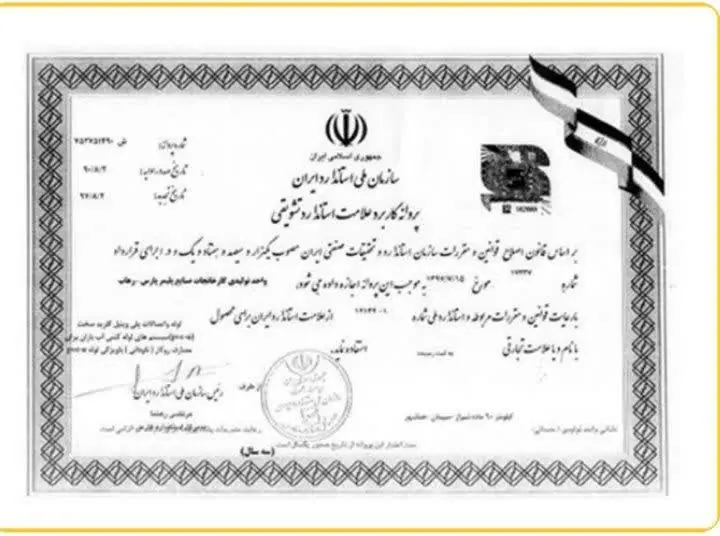 جمهوری اسلامی ایران
سازمان ملی استاندارد ایران
پروانه کاربرد علامت استاندارد تشویقی
شماره پروانه: ش ۷۵۳۷۵۱۴۹۰
تاریخ صدور اولیه: ۹۰/۸/۲
تاریخ تجدید: ۹۷/۸/۲
بر اساس قانون اصلاح قوانین و مقررات سازمان استاندارد و تحقیقات صنعتی ایران مصوب یکهزار و سیصد و هفتاد و یک و در اجرای قرارداد
شماره ۱۷۲۳۷ مورخ ۱۳۹۷/۷/۱۵ به موجب این پروانه اجازه داده می شود، واحد تولیدی کارخانجات صنایع پلیمر پارس -
با رعایت قوانین و مقررات مربوطه و استاندارد ملی شماره از علامت استاندارد ایران برای محصول
لوله و اتصالات پلی وینیل کلرید سخت
سیستم های لوله کشی آب باران برای
مصارف روکار
با نام و یا علامت تجارتی به ثبت رسیده استفاده نماید.
رئیس سازمان ملی استاندارد ایران
از طرف
کیلومتر ۶۰ جاده شیراز -
نشانی واحد تولیدی
مدت اعتبار این پروانه از تاریخ صدور یکسال است.
(سه سال)